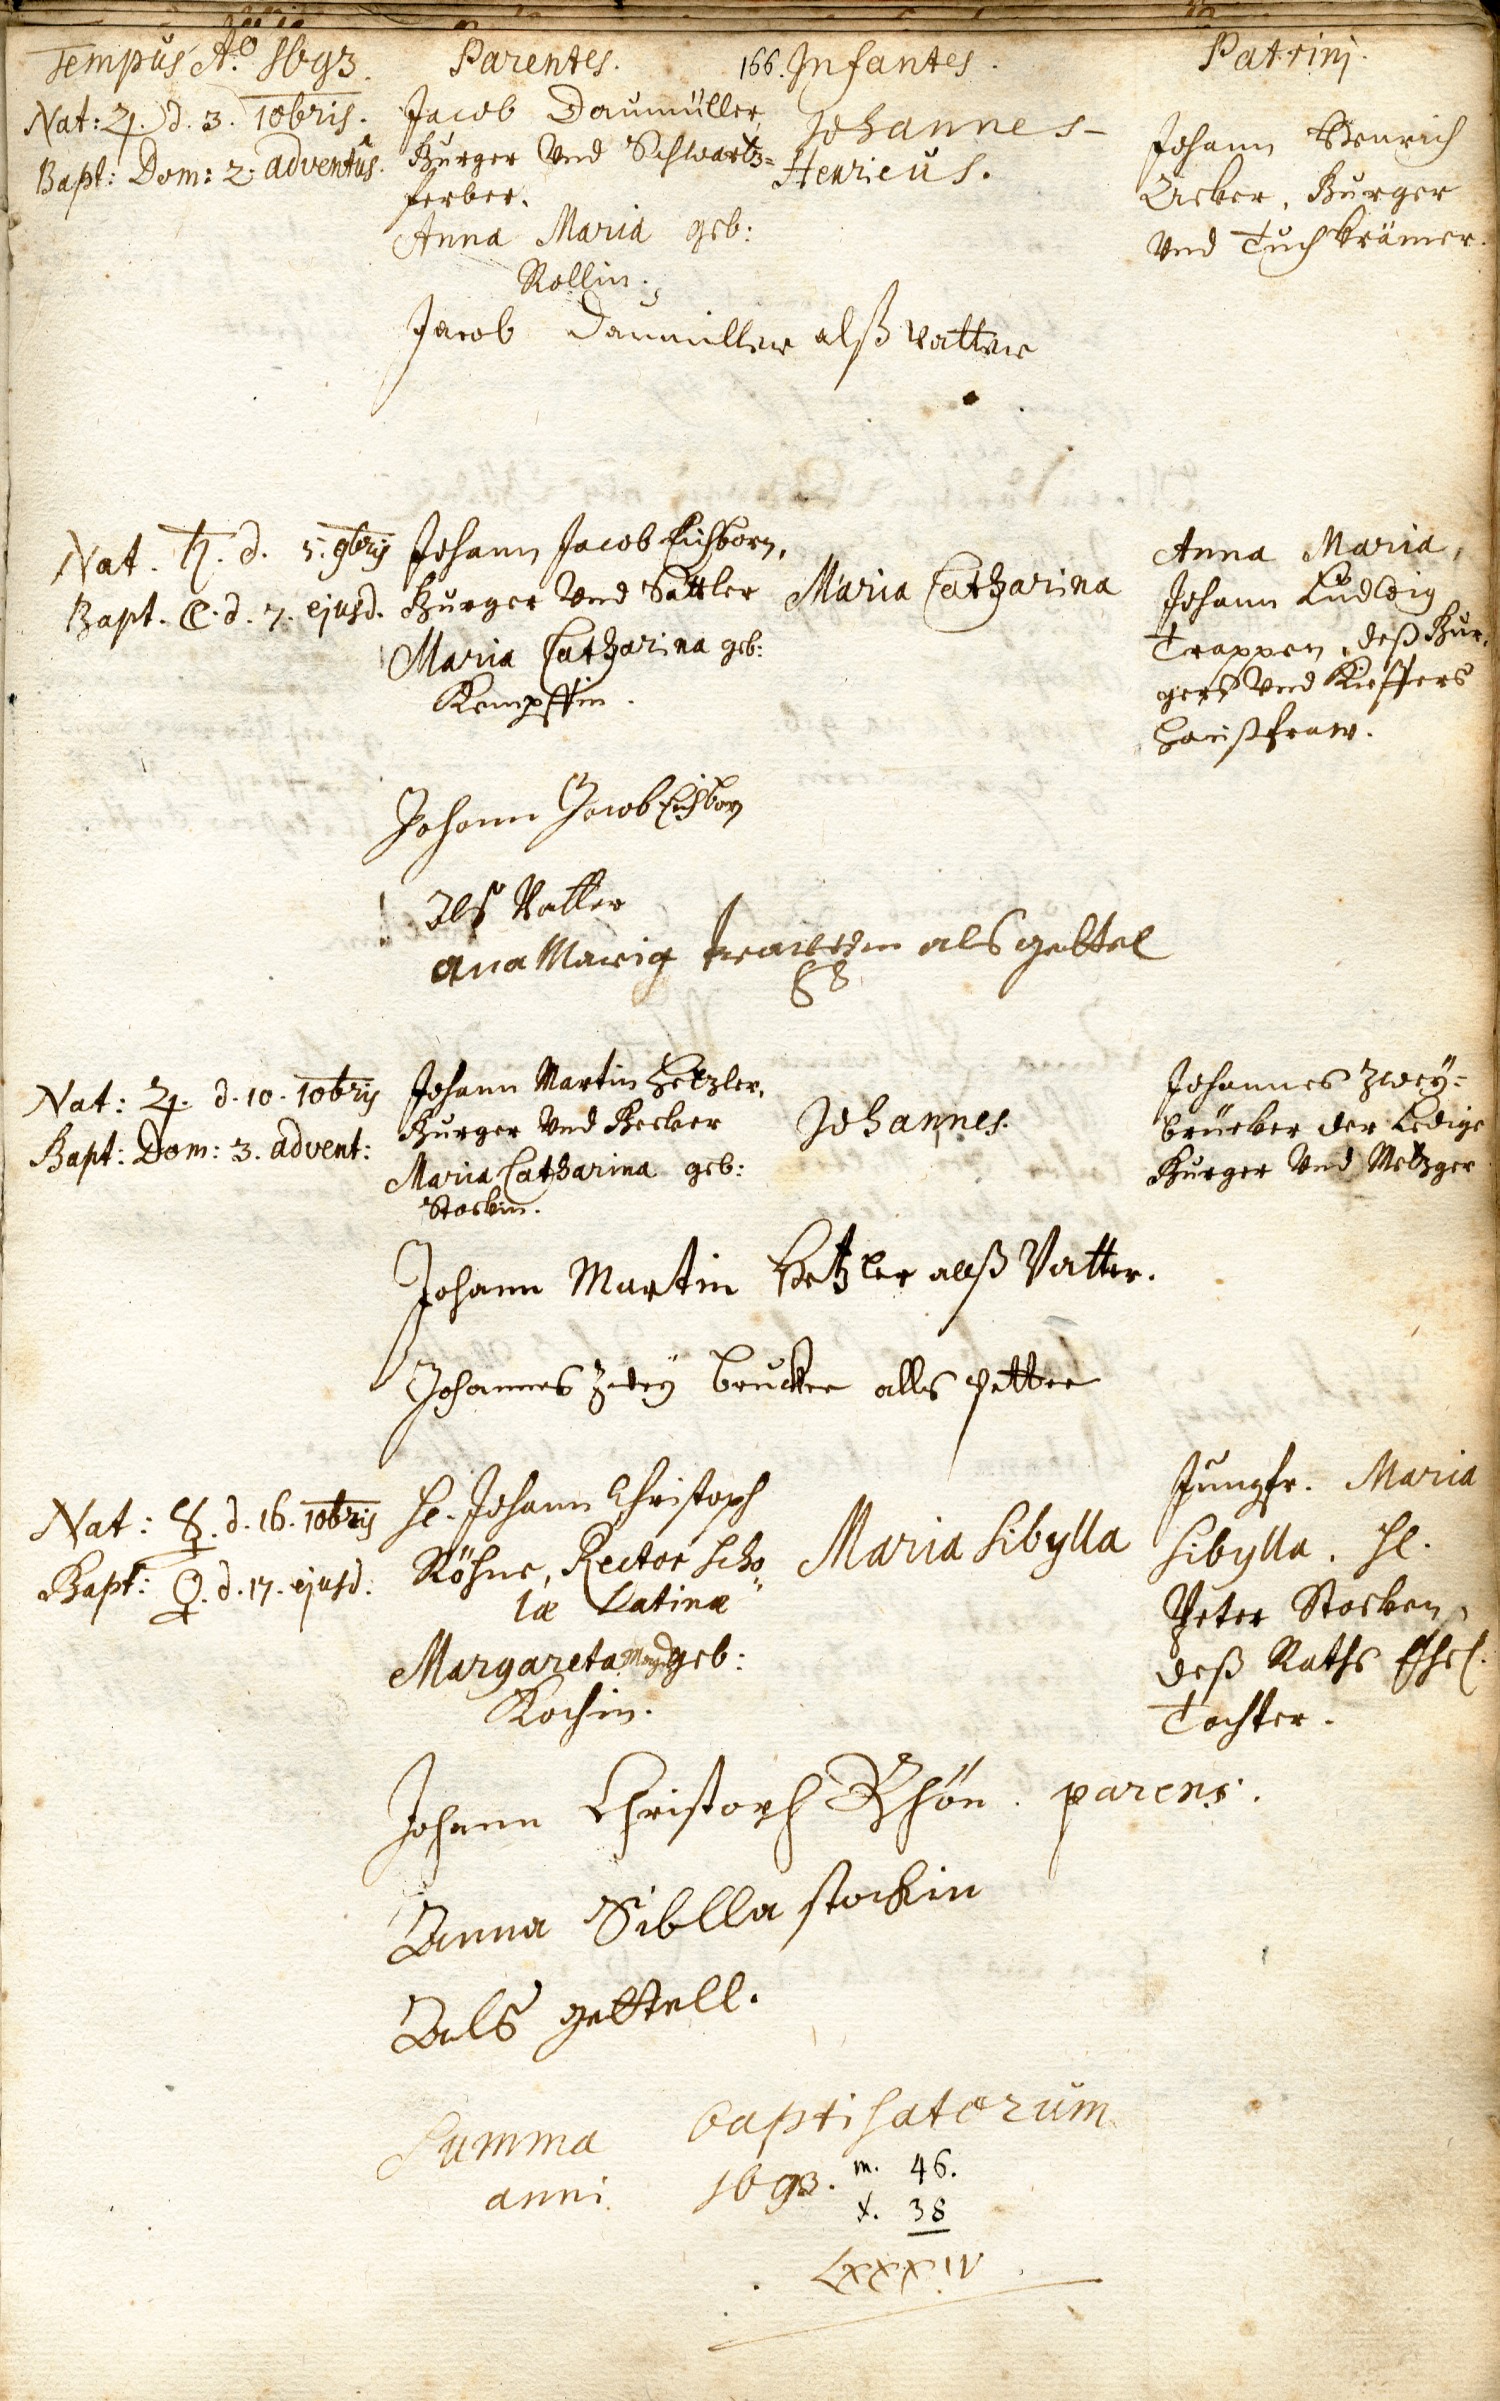 Tempus Aº 1693.
Parentes.
166. Infantes.
Patrini.
Nat: ♃. d. 3. 10bris.
Bapt: Dom: 2. adventûs.
Jacob Daumüller,
Burger Und Schwartz=
ferber.
Anna Maria geb:
Rollin.
Johannes-
Henricus.
Johann Henrich
Burger
Und Tuch krämer.
Jacob Daumüller alß vatter
Nat. ♄. d. 5. 9bris
Bapt. ☾. d. 7. ejusd.
Johann Jacob Eichborn,
Burger Und Sattler
Maria Catharina geb:
Kempffin.
Maria Catharina
Anna Maria,
Johann Ludwig
Trappen, deß Bur=
gers Und Kieffers
Haußfraw.
Johann Jacob Eichborn
Als Vatter
ana Maria als gettel
Nat: ♃. d. 10. 10bris
Bapt: Dom: 3. advent:
Johann Martin Hetzler,
Burger Und Becker
Maria Catharina geb:
Stockin.
Johannes.
Johannes Zwey=
brücker der Ledige
Burger Und Metzger
Johann Martin Hetzler alß Vatter.
Johannes Zwey brucker alls petter
Nat: ☿. d. 16. 10bris
Bapt: ♀. d. 17. ejusd.
H. Johann Christoph
Röhne, Rector Scho
læ Latinæ
Margareta geb:
Kochin.
Maria Sibylla
Jungfr. Maria
Sibylla. H.
Peter Stocken,
deß Raths Ehel.
Tochter.
Johann Christoph Rhön. parens.
Anna Siblla stockin
Als gettell.
Summa baptisatorum
anni 1693. m. 46.
f. 38
LXXXIV